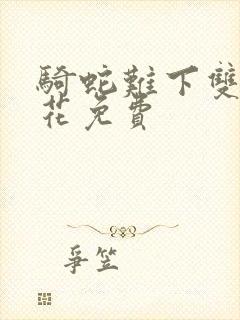 騎蛇難下雙
花免費
爭笠